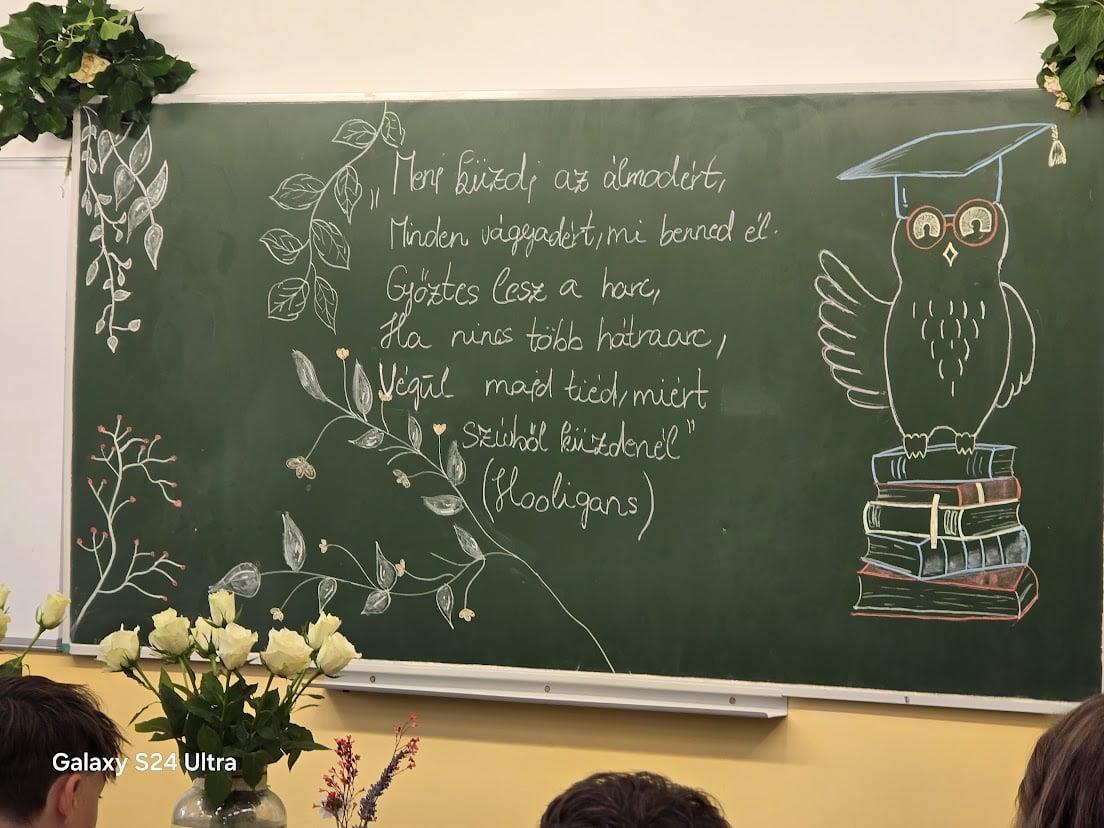 „Menj küzdj az álmodért,
Minden vágyadért, mi benned él.
Győztes lesz a harc,
Ha nincs több hátraarc,
Végül majd tiéd, miért
szívből küzdenél"
(Hooligans)
Galaxy S24 Ultra